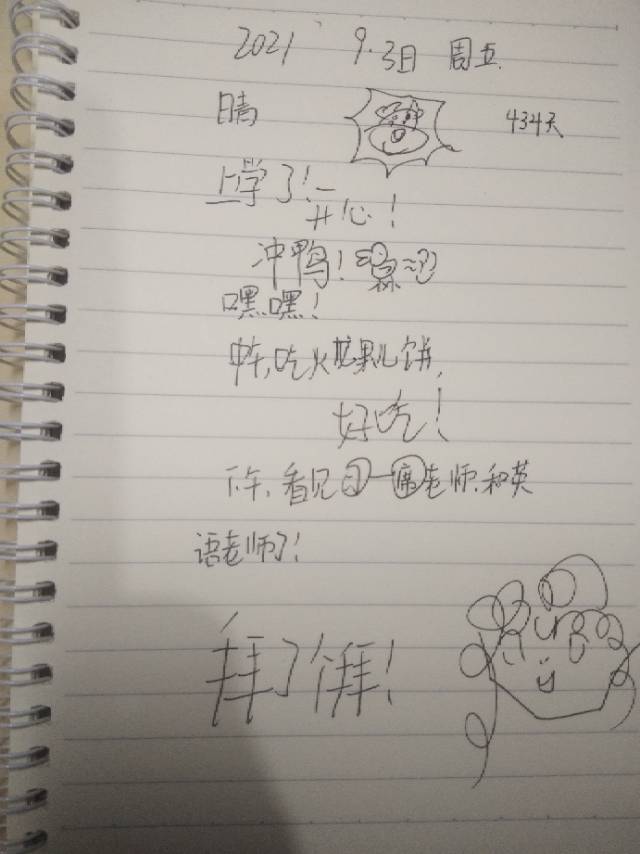 2021 9.3日 周五
晴 434天
上学了!
开心!
冲鸭!
嘿嘿!
中午,吃火龙果儿饼,
好吃!
下午,看见 一 席老师和英
语老师了!
拜了个拜!